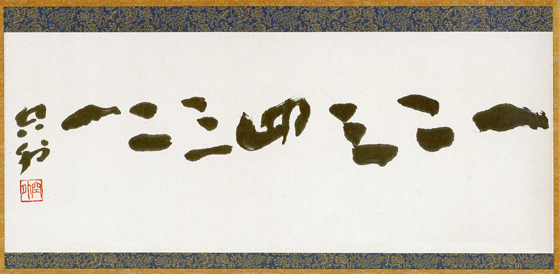 一二三四三二一